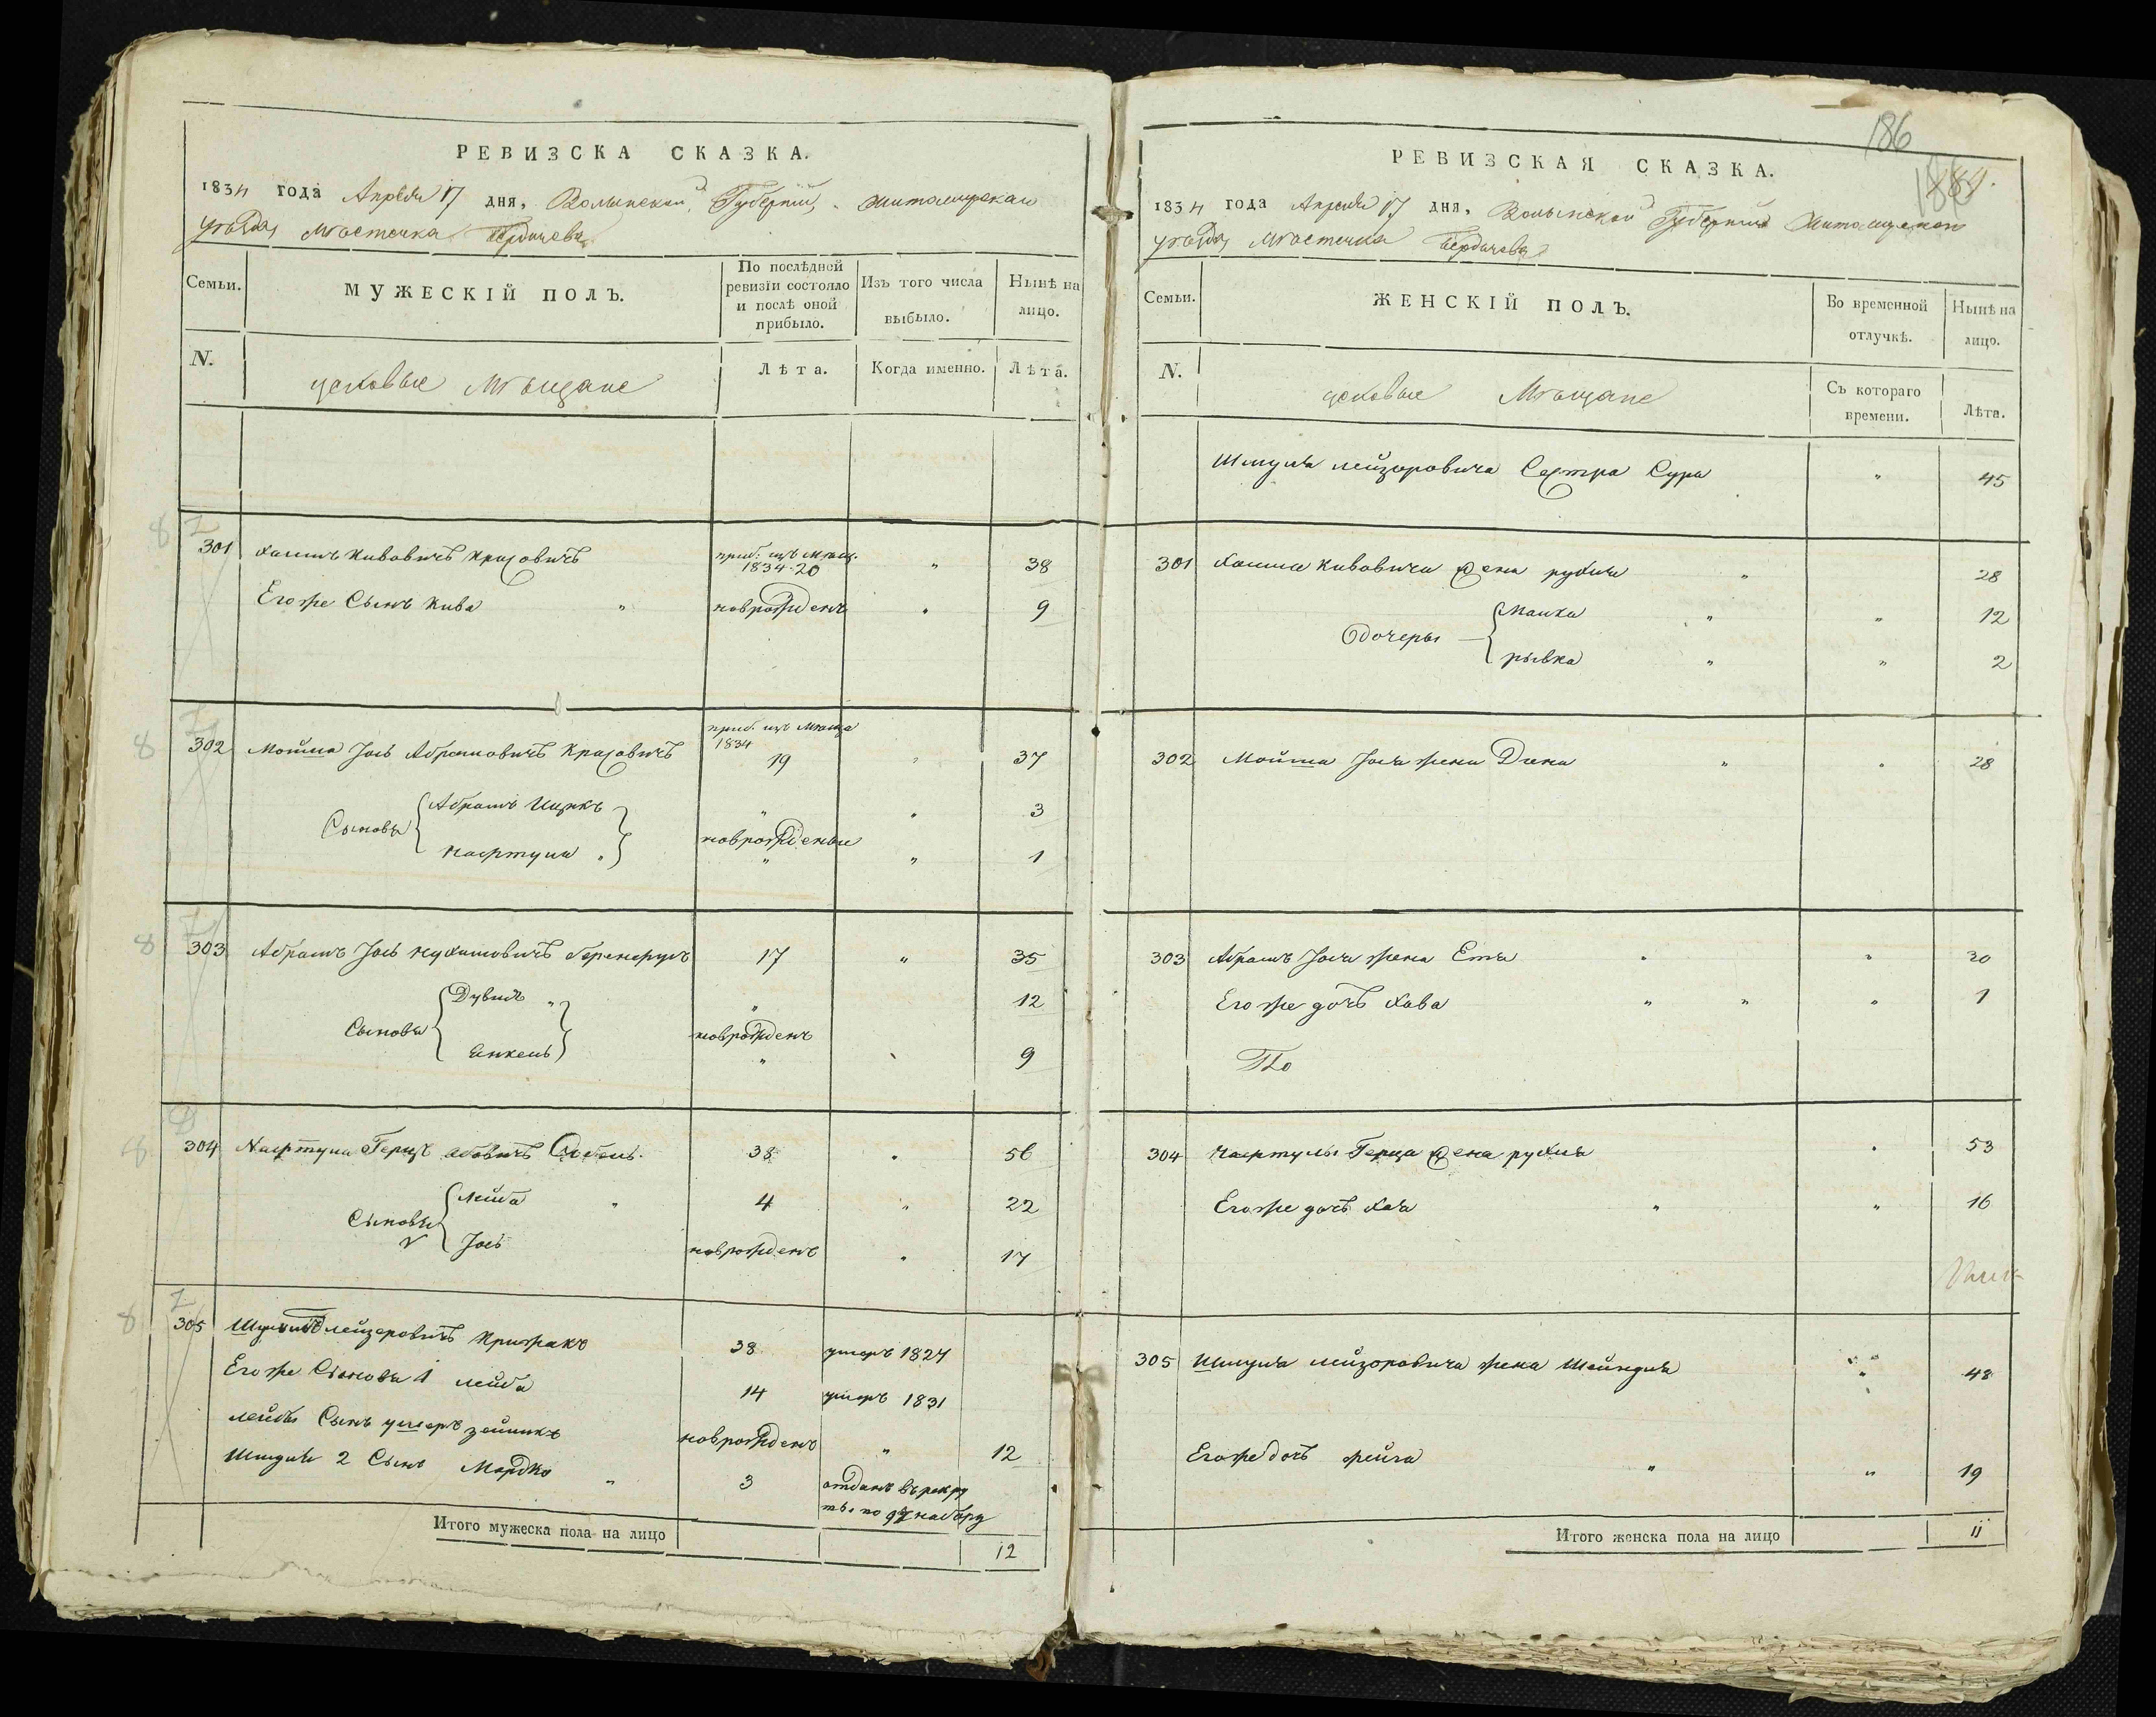 РЕВИЗСКА СКАЗКА.
1834 года Апреля 17 дня, Волынской Губернии, Житомирскаго
уѣзда Мѣстечка Бердичева
Семьи.
МУЖЕСКІЙ ПОЛЪ.
По послѣдней ревизіи состояло и послѣ оной прибыло.
Изъ того числа выбыло.
Нынѣ на лицо.
N.
цеховые Мѣщане
Лѣта.
Когда именно.
Лѣта.
301 Хаимъ Кивовичъ
приб: изъ Мѣщ. 1834 20 " 38
Егоже Сынъ Кива " новрожденъ " 9
302 Мошка Іось Абрамовичъ
приб. изъ Мѣща 1834 19 " 37
Сыновья
Абрамъ Ицикъ " " 3
новрожденые
Нафтула " " " 1
303 Абрамъ Іось Нухимовичъ 17 " 35
Сыновья
Дувидъ " " 12
новрожденъ
Янкель " 9
304 Нафтула Герцъ 38 " 56
Сыновья
Лейба " 4 " 22
Іось новрожденъ " 17
305 Шмуль Лейзеровичъ 38 умеръ 1827
Егоже Сыновья 1 Лейба 14 умеръ 1831
Лейбы Сынъ новрожденъ " 12
Шмуля 2 Сынъ Мордко " 3 отданъ въ рекруты по набору
Итого мужеска пола на лицо 12
186
РЕВИЗСКАЯ СКАЗКА.
1834 года Апреля 17 дня, Волынской Губернии Житомирскаго
уѣзда Мѣстечка Бердичева
Семьи.
ЖЕНСКІЙ ПОЛЪ.
Во временной отлучкѣ.
Нынѣ на лицо.
N.
цеховые Мѣщане
Съ котораго времени.
Лѣта.
Шмуля Лейзоровича Сестра Сура " 45
301 Хаима Кивовича жена рухля " 28
дочеры
Малка " " 12
рывка " " 2
302 Мошка Іося жена Дина " " 28
303 Абрамъ Іося жена Етя " " 30
Егоже дочъ Хава " " " 1
По
304 Нафтулы Герца жена рухля " 53
Егоже дочъ Хая " " 16
305 Шмуля Лейзоровича жена Шейндля " 48
Егоже дочъ фейга " " 19
Итого женска пола на лицо 11